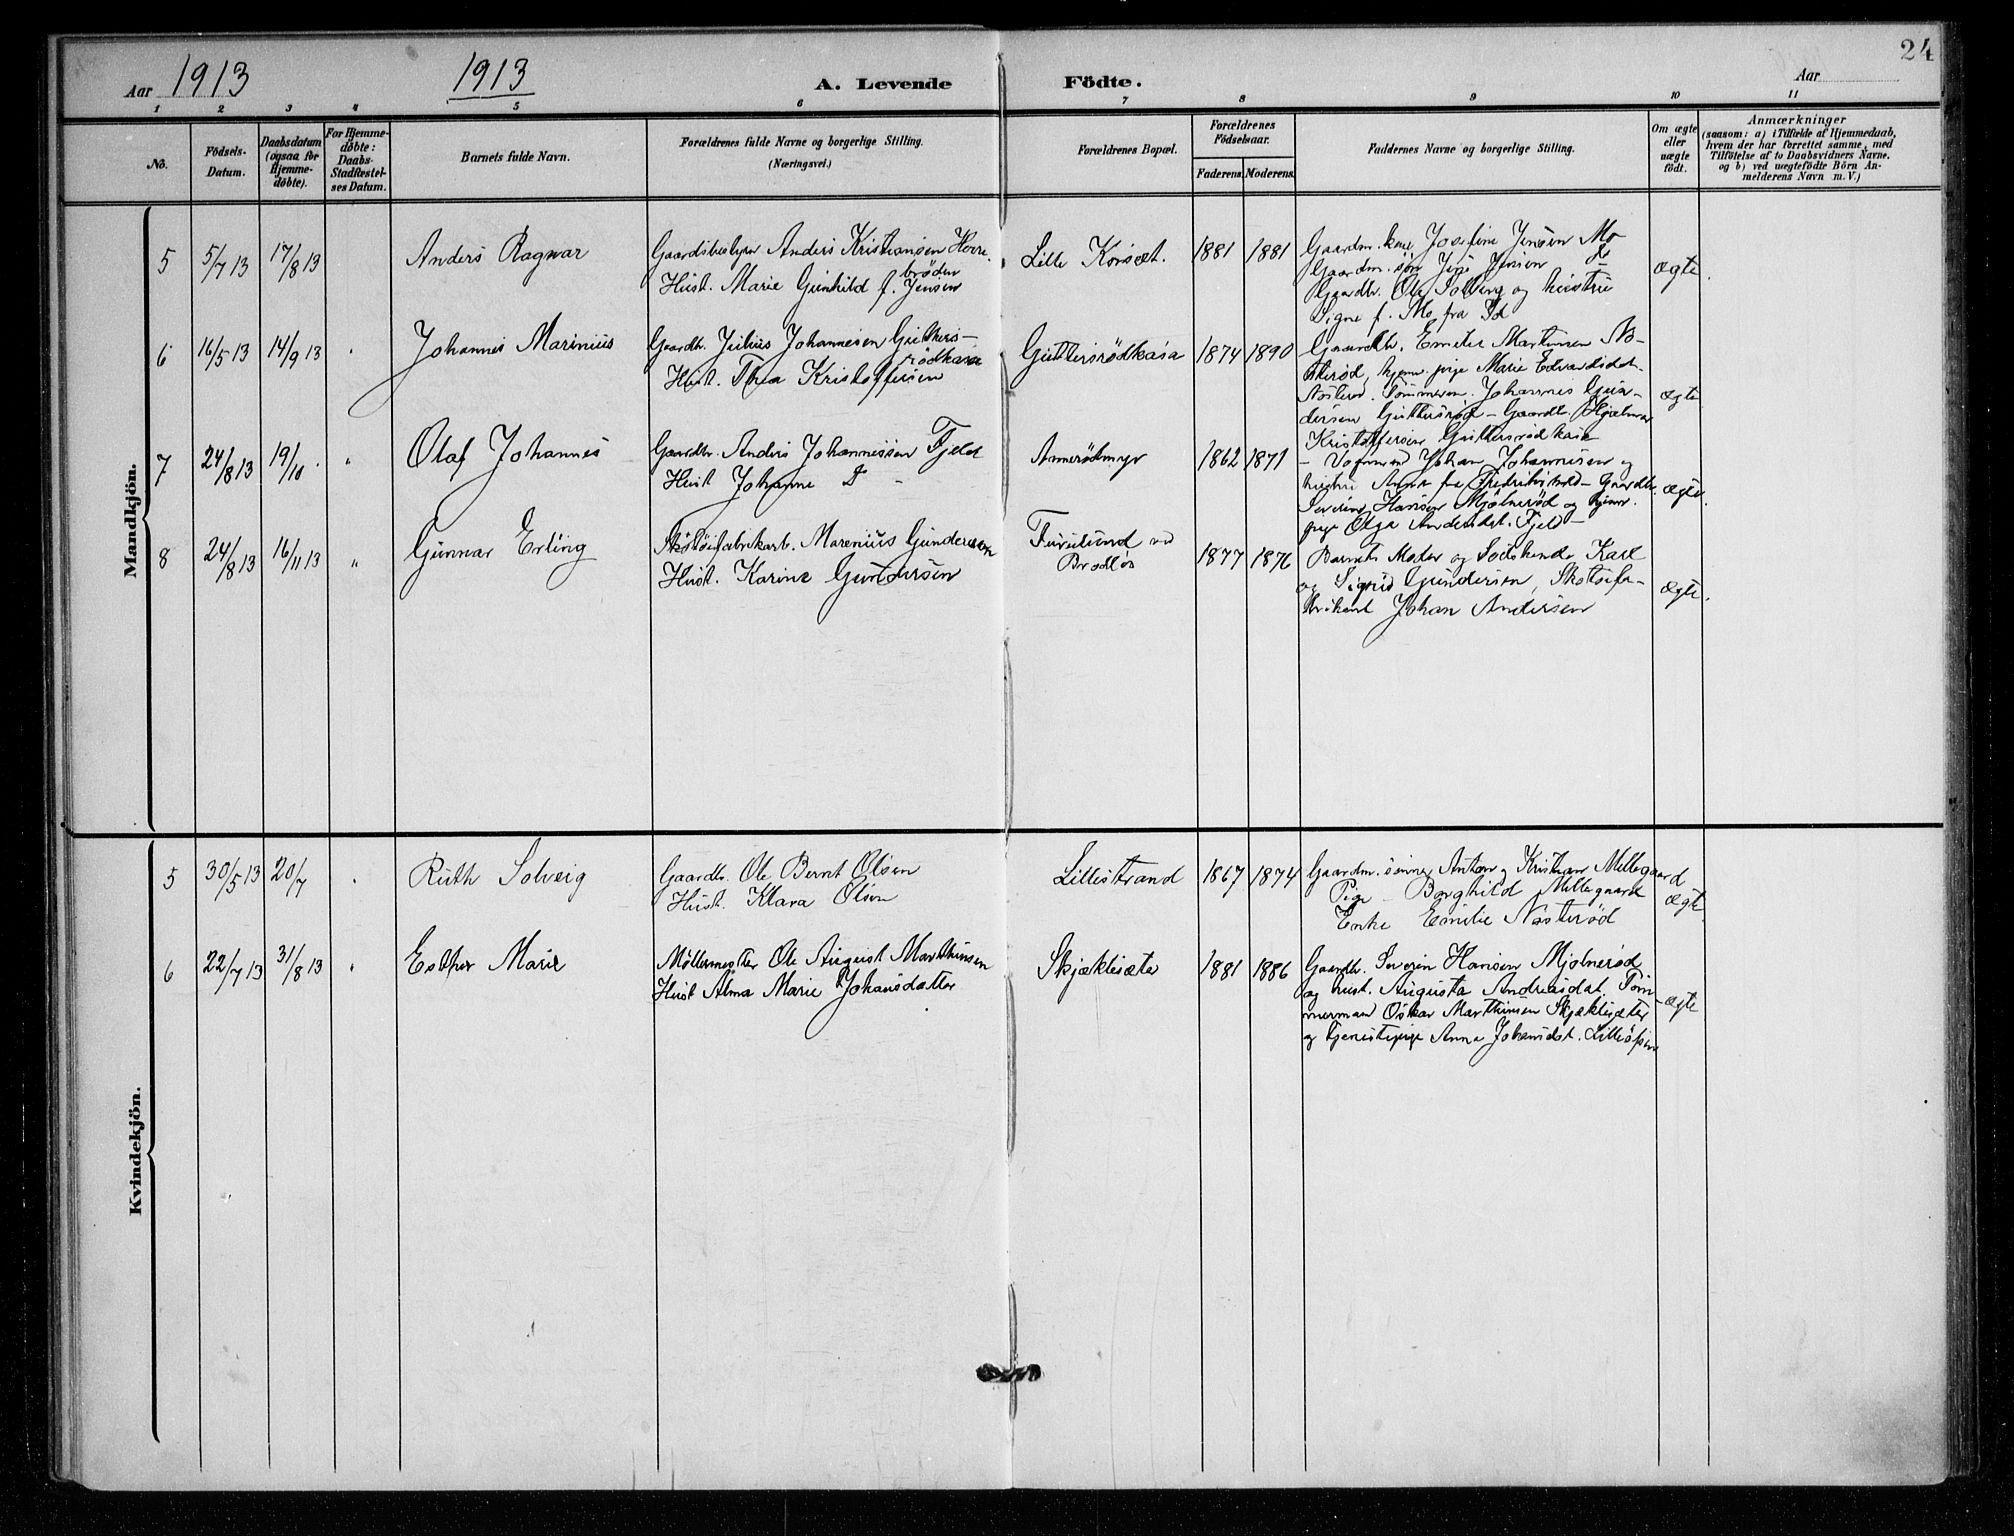 24
Aar 1913
1913
A. Levende Födte.
Aar
1 2 3 4 5 6 7 8 9 10 11
No.
Födsels-
Datum.
Daabsdatum
(ogsaa for
Hjemme-
döbte).
For Hjemme-
döbte:
Daabs-
Stadfæstel-
ses Datum.
Barnets fulde Navn.
Forældrenes fulde Navne og borgerlige Stilling.
(Næringsvei.)
Forældrenes Bopæl.
Forældrenes
Födselsaar.
Faderens. Moderens.
Faddernes Navne og borgerlige Stilling.
Om ægte
eller
uægte
födt.
Anmærkninger
(saasom: a) i Tilfælde af Hjemmedaab,
hvem der har forrettet samme, med
Tilföielse af to Daabsvidners Navne,
og b) ved uægtefödte Börn An-
melderens Navn m. V.)
Mandkjön.
5 5/7 13 17/8 13
Anders Ragnar
Gaardsbestyrer Anders Kristiansen Horre-
brøden
Hust. Marie Gunhild f. Jensen
Lille Korsæt.
1881 1881
Gaardm. kone Josefine Jensen Mo
Gaardm. søn Jens Jensen do
Gaardbr. Ole Solberg og hustru
Signe f. Mo fra Id
ægte
6 16/5 13 14/9 13
Johannes Marinius
Gaardbr. Julius Johannesen Gutters-
rødkasa
Hust. Thea Kristoffersen
Guttersrödkasa
1874 1890
Gaardbr. Emeler Martinsen Nø-
sterød, hjem. pige Marie Edvardsdat.
Nøsterød. Tømmerm. Johannes Gun-
dersen Guttersrød - Gaardbr. Hjalmar
Kristoffersen Guttersrødkasa
ægte
7 24/8 13 19/10
Olaf Johannes
Gaardbr. Anders Johannessen Fjeld
Hust. Johanne D -
Annerödmyr
1862 1871
- Sømand Johan Johannesen og
hustru Anna fra Fredrikshald - Gaardbr.
Severin Hansen Mjølnerød og hjemv.
pige Olga Andersdat. Fjeld -
ægte
8 24/8 13 16/11 13
Gunnar Erling
Skotøifabrikarb. Marenius Gundersen
Hust. Karine Gundersen
Furulund ved
Brødløs
1877 1876
Barnets Moder og Sødskende Karl
og Sigrid Gundersen, Skotøifa-
brikant Johan Andersen
ægte.
Kvindekjön.
5 30/5 13 20/7
Ruth Solveig
Gaardbr. Ole Bernt Olsen
Hust. Klara Olsen
Lillestrand
1867 1874
Gaardm. sønner Anton og Kristian Mellegaard
Pige - Borghild Mellegaard
Enke Emilie Nøsterød
ægte
6 22/7 13 31/8 13
Esther Marie
Møllermester Ole August Marthinsen
Hust. Alma Marie Johansdatter
Skjæklesæter
1881 1886
Gaardbr. Severin Hansen Mjølnerød
og hust. Augusta Andreasdat. Tøm-
mermand Oskar Marthinsen Skjæklesæter
og tjenestepige Anna Johansdat.
ægte